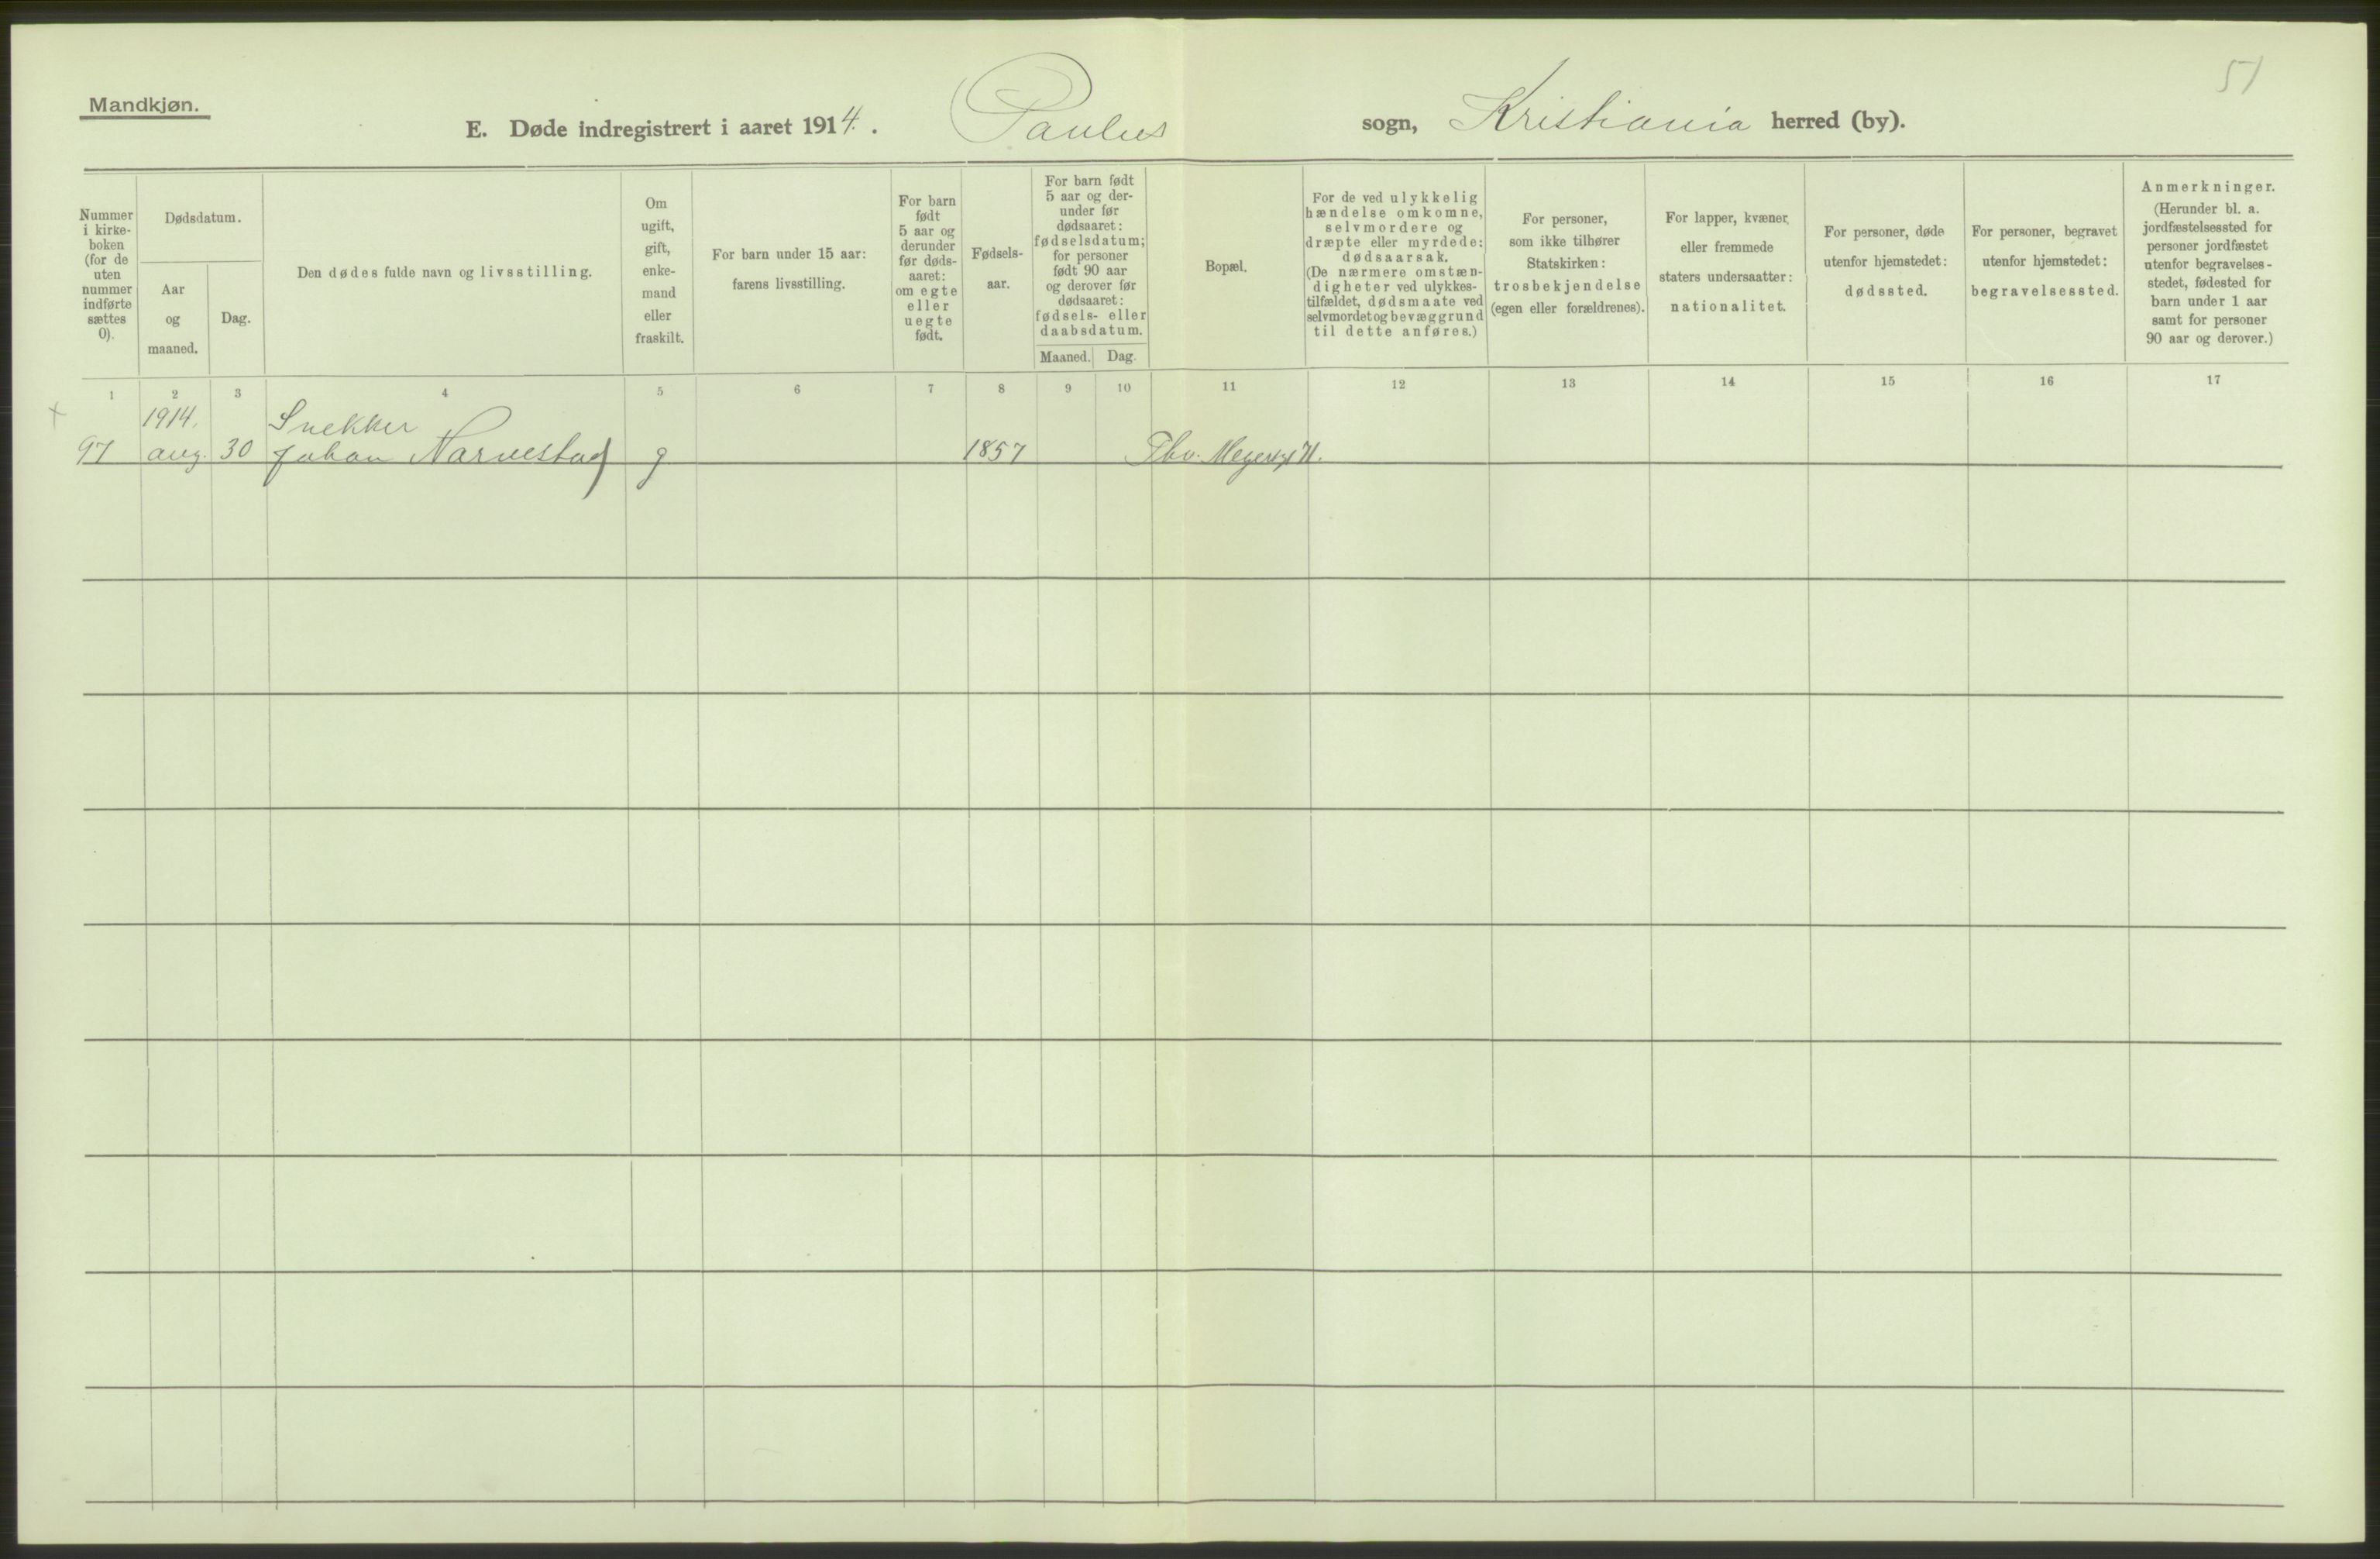 51
Mandkjøn.
E. Døde indregistrert i aaret 1914. Paulus sogn, Kristiania herred (by).
Nummer
i kirke-
boken
(for de
uten
nummer
indførte
sættes
0).
Dødsdatum.
Aar
og
maaned.
Dag.
Den dødes fulde navn og livsstilling.
Om
ugift,
gift,
enke-
mand
eller
fraskilt.
For barn under 15 aar:
farens livsstilling.
For barn
født
5 aar og
derunder
før døds-
aaret:
om egte
eller
uegte
født.
Fødsels-
aar.
For barn født
5 aar og der-
under før
dødsaaret:
fødselsdatum;
for personer
født 90 aar
og derover før
dødsaaret:
fødsels- eller
daabsdatum.
Maaned. Dag.
Bopæl.
For de ved ulykkelig
hændelse omkomne,
selvmordere og
dræpte eller myrdede:
dødsaarsak.
(De nærmere omstæn-
digheter ved ulykkes-
tilfældet, dødsmaate ved
selvmordet og bevæggrund
til dette anføres.)
For personer,
som ikke tilhører
Statskirken:
trosbekjendelse
(egen eller forældrenes).
For lapper, kvæner,
eller fremmede
staters undersaatter:
nationalitet.
For personer, døde
utenfor hjemstedet:
dødssted.
For personer, begravet
utenfor hjemstedet:
begravelsessted.
Anmerkninger.
(Herunder bl. a.
jordfæstelsessted for
personer jordfæstet
utenfor begravelses-
stedet, fødested for
barn under 1 aar
samt for personer
90 aar og derover.)
1 2 3 4 5 6 7 8 9 10 11 12 13 14 15 16 17
1914. Snekker
97 aug. 30 Johan Narvestad g 1857 Thv. Meyersgt